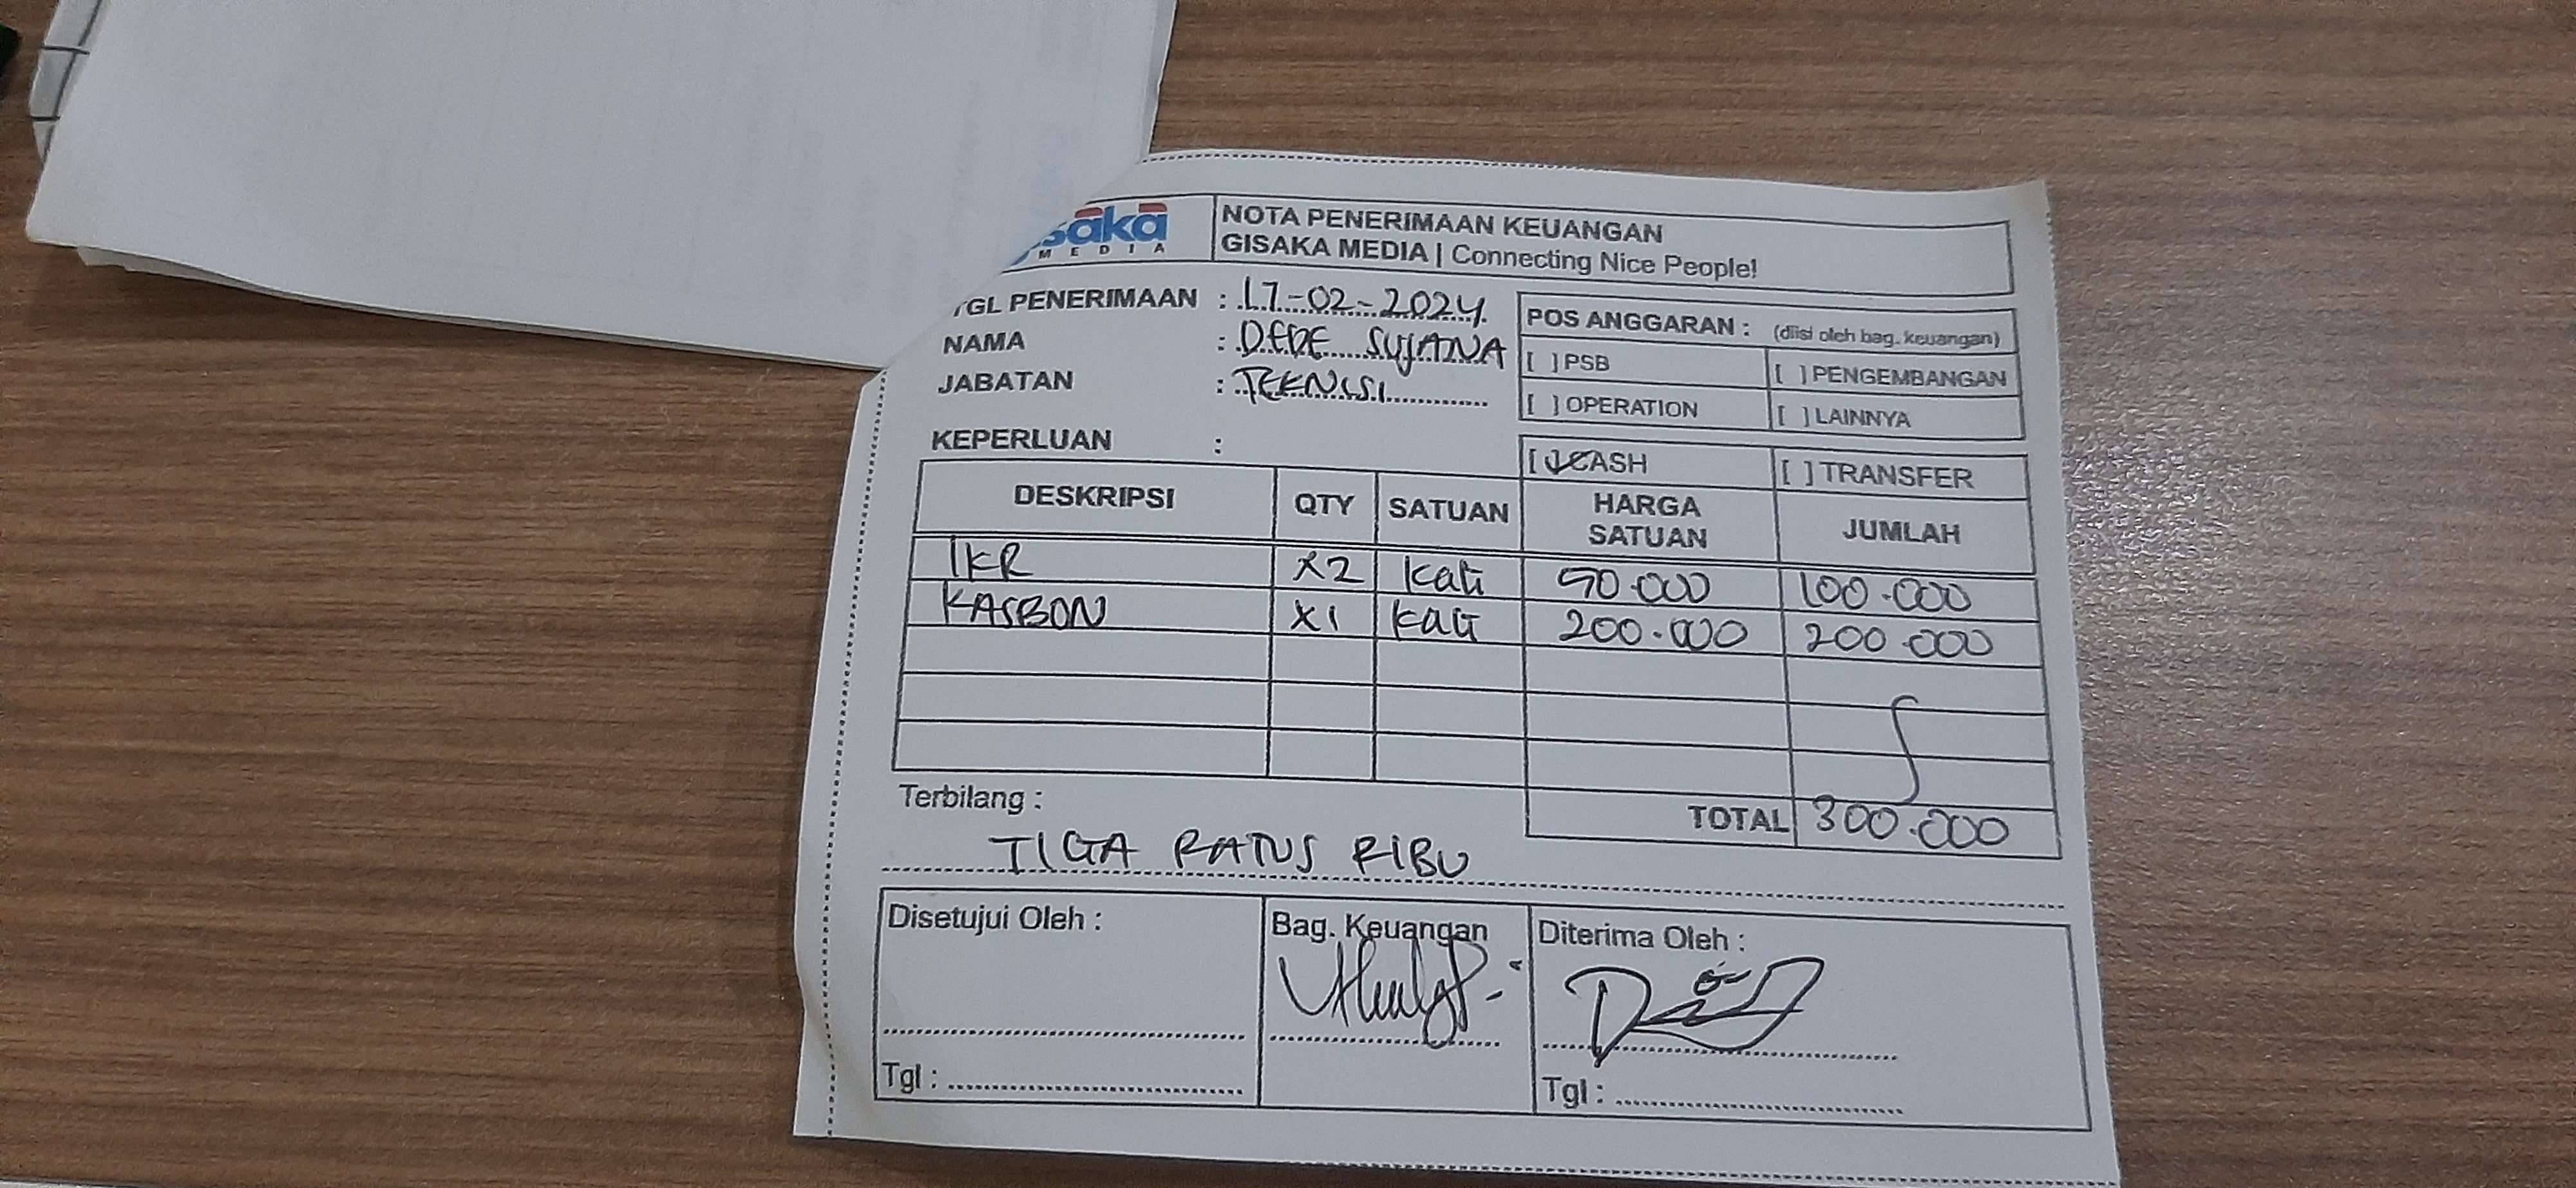 saka
MEDIA
NOTA PENERIMAAN KEUANGAN
GISAKA MEDIA | Connecting Nice People!
TGL PENERIMAAN : 17-02-2024
NAMA : DEDE SUJANA
JABATAN : TEKNISI
POS ANGGARAN : (diisi oleh bag. keuangan)
[ ] PSB [ ] PENGEMBANGAN
[ ] OPERATION [ ] LAINNYA
KEPERLUAN :
[✓] CASH [ ] TRANSFER
DESKRIPSI QTY SATUAN HARGA SATUAN JUMLAH
IKR x2 kali 50.000 100.000
KASBON x1 kali 200.000 200.000
TOTAL 300.000
Terbilang :
TIGA RATUS RIBU
Disetujui Oleh : Bag. Keuangan Diterima Oleh :
Tgl : Tgl :